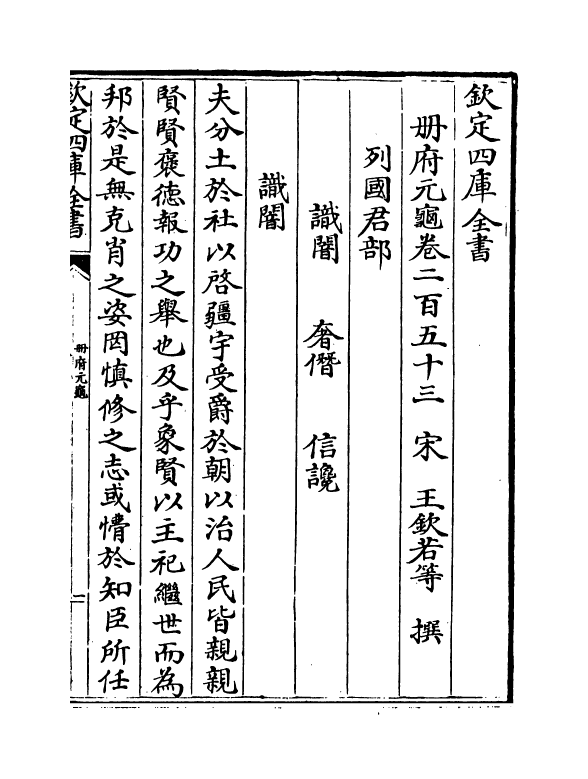 欽定四庫全書
冊府元龜卷二百五十三 宋 王欽若等 撰
列國君部
識闇 奢僭 信讒
識闇
夫分土於社以啓疆宇受爵於朝以治人民皆親親
賢賢褒德報功之舉也及乎象賢以主祀繼世而為
邦於是無克肖之姿罔慎修之志或懵於知臣所任
欽定四庫全書
冊府元龜